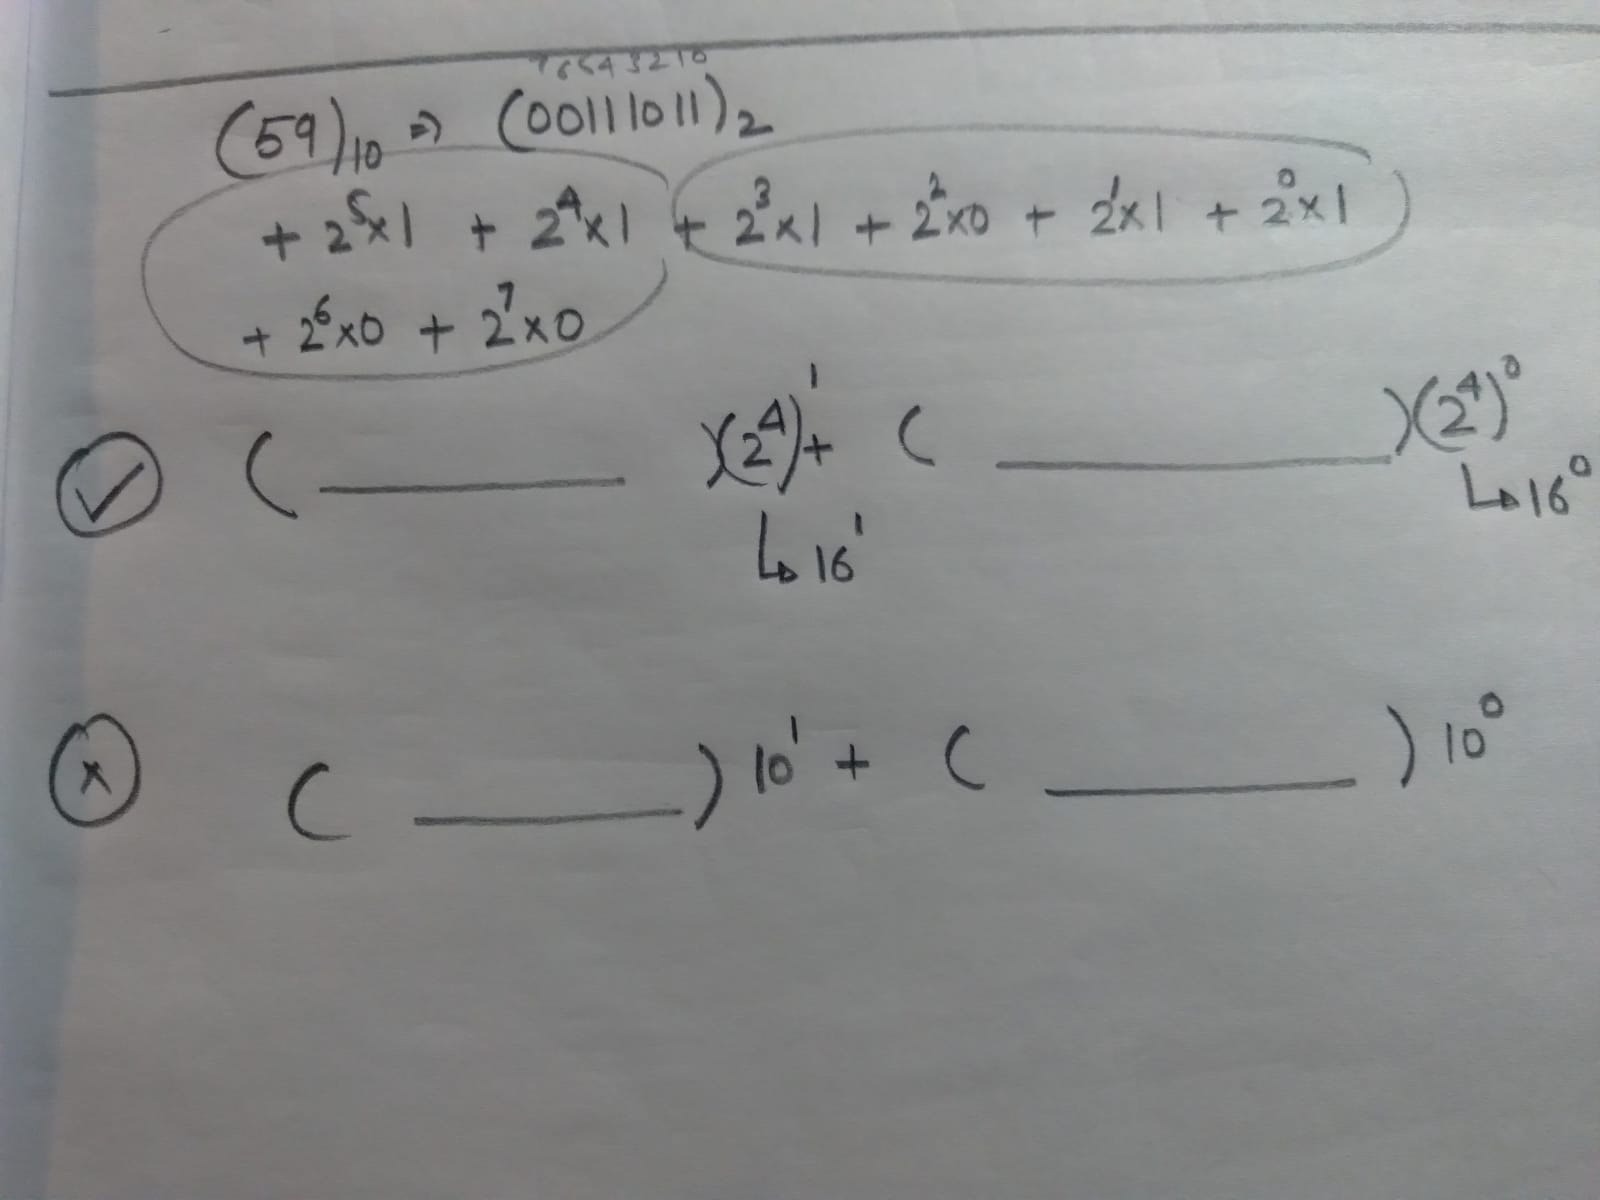 7 6 5 4 3 2 1 0
(59)₁₀ ⇒ (00111011)₂
+ 2⁵×1 + 2⁴×1 + 2³×1 + 2²×0 + 2¹×1 + 2⁰×1
+ 2⁶×0 + 2⁷×0
✓ ( ______ )(2⁴)¹ + ( ______ )(2⁴)⁰
↳ 16¹ ↳ 16⁰
× ( ______ ) 10¹ + ( ______ ) 10⁰